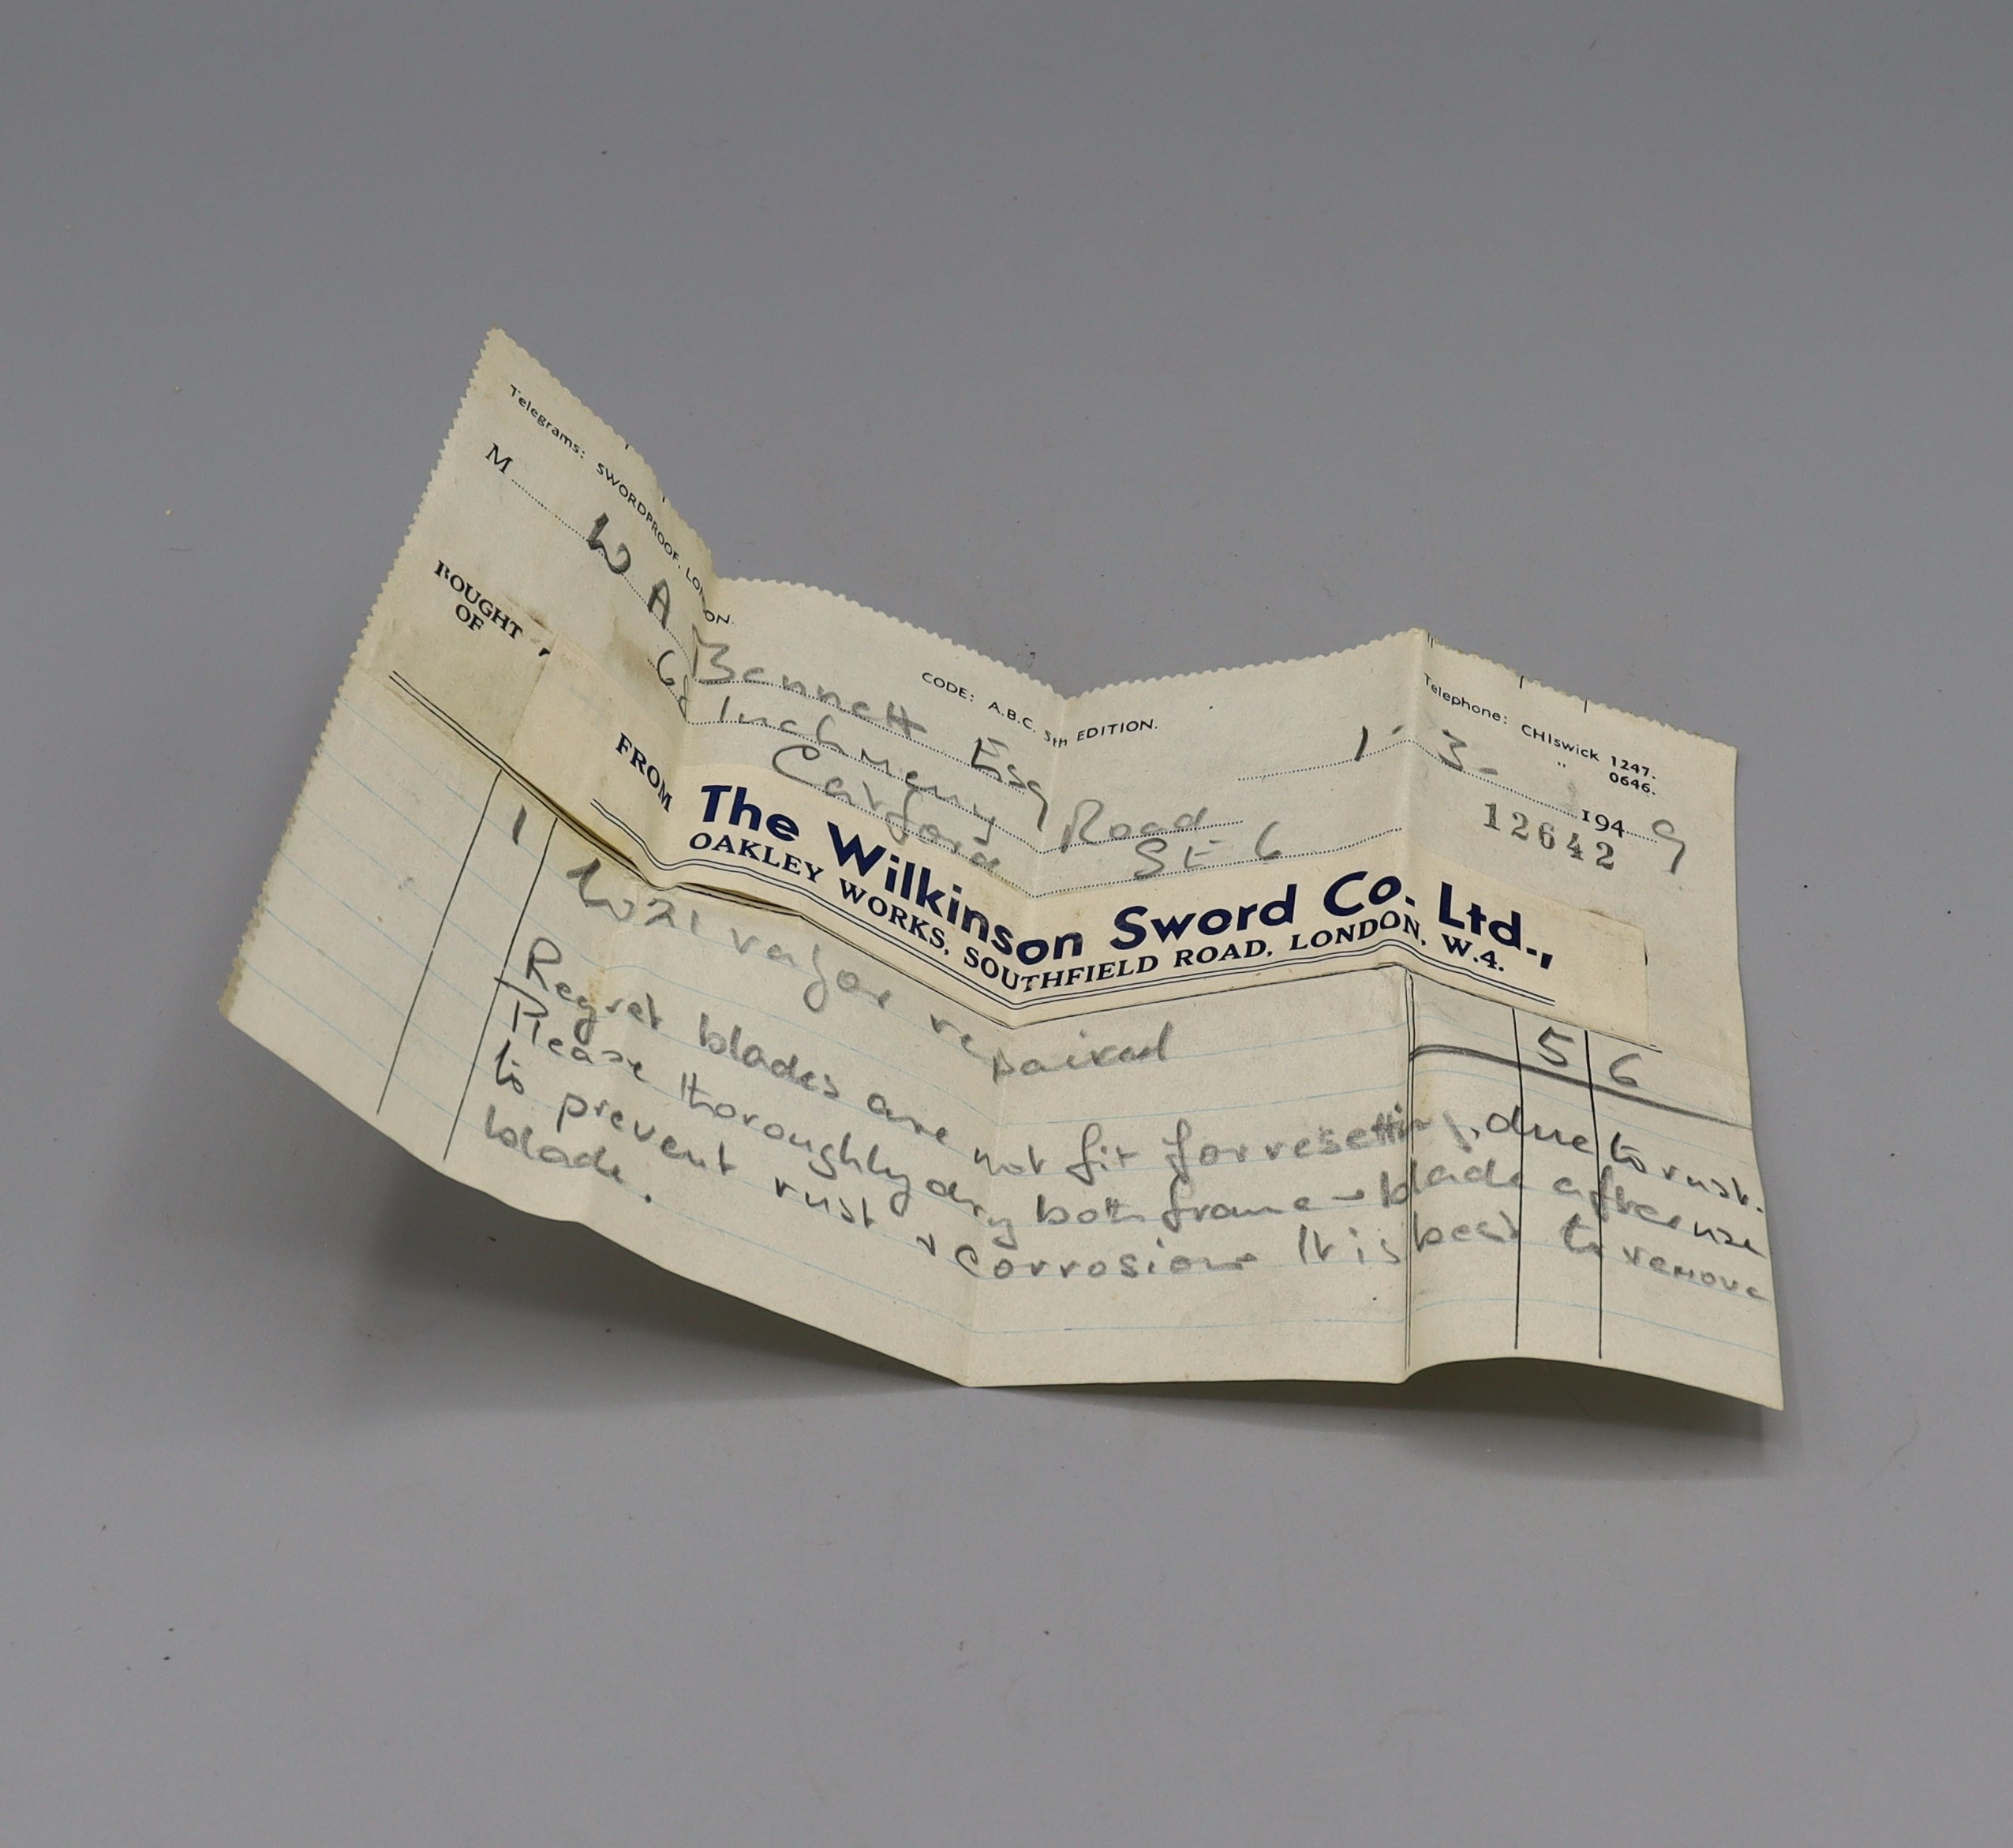 Telegrams: SWORDPROOF, LONDON.
CODE: A.B.C. 5th EDITION.
Telephone: CHIswick 1247.
" 0646.
M W A Bennett Esq
1 - 3 - 1949
68 Inchmery Road
12642
Catford SE 6
BOUGHT OF
FROM
The Wilkinson Sword Co. Ltd.,
OAKLEY WORKS, SOUTHFIELD ROAD, LONDON, W.4.
1 razor repaired 5 6
Regret blades are not fit for resetting, due to rust.
Please thoroughly dry both frame + blade after use
to prevent rust + corrosion It is best to remove
blade.